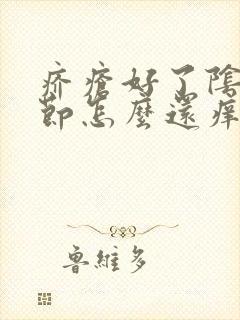 疥瘡好了陰
節怎麼還痒
魯維多